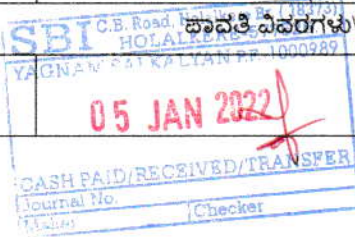 ಪಾವತಿ ವಿವರಗಳು
SBI C.B. Road,
HOLALKERE
YAGNA SAI KALYAN P.F. 1000989
05 JAN 2022
CASH PAID/RECEIVED/TRANSFER
Journal No.
Checker